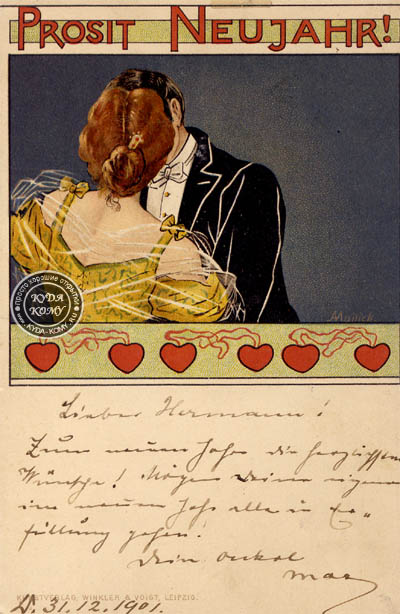 PROSIT NEUJAHR!
просто хорошие открытки
КУДА
КОМУ
www.KYDA-KOMY.ru
Lieber Hermann!
Zum neuen Jahr die herzlichsten
Wünsche! Mögen deine eigenen
im neuen Jahr alle in Er=
füllung gehen!
Dein Onkel
Max
KUNSTVERLAG: WINKLER & VOIGT, LEIPZIG.
D. 31.12.1901.